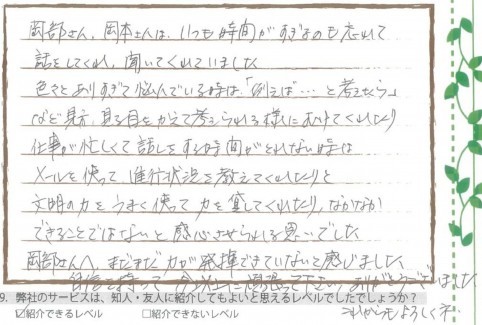 岡部さん、岡本さんは、いつも時間がすぎるのも忘れて
話をしてくれ、聞いてくれていました
色々とありすぎて悩んでいる時は、「例えば…と考えたら」
など見方、見る目をかえて考えられる様にむけてくれたり
仕事が忙しくて話しをする時間がとれない時は
メールを使って進行状況を教えてくれたりと
文明の力をうまく使って力を貸してくれたり、なかなか
できることではないと感心させられる思いでした
岡部さんへ、まだまだ力が発揮できていないと感じました
自信を持って今以上に頑張って下さい。ありがとうございました
これからもよろしくネ…
9. 弊社のサービスは、知人・友人に紹介してもよいと思えるレベルでしたでしょうか？
☑紹介できるレベル　□紹介できないレベル